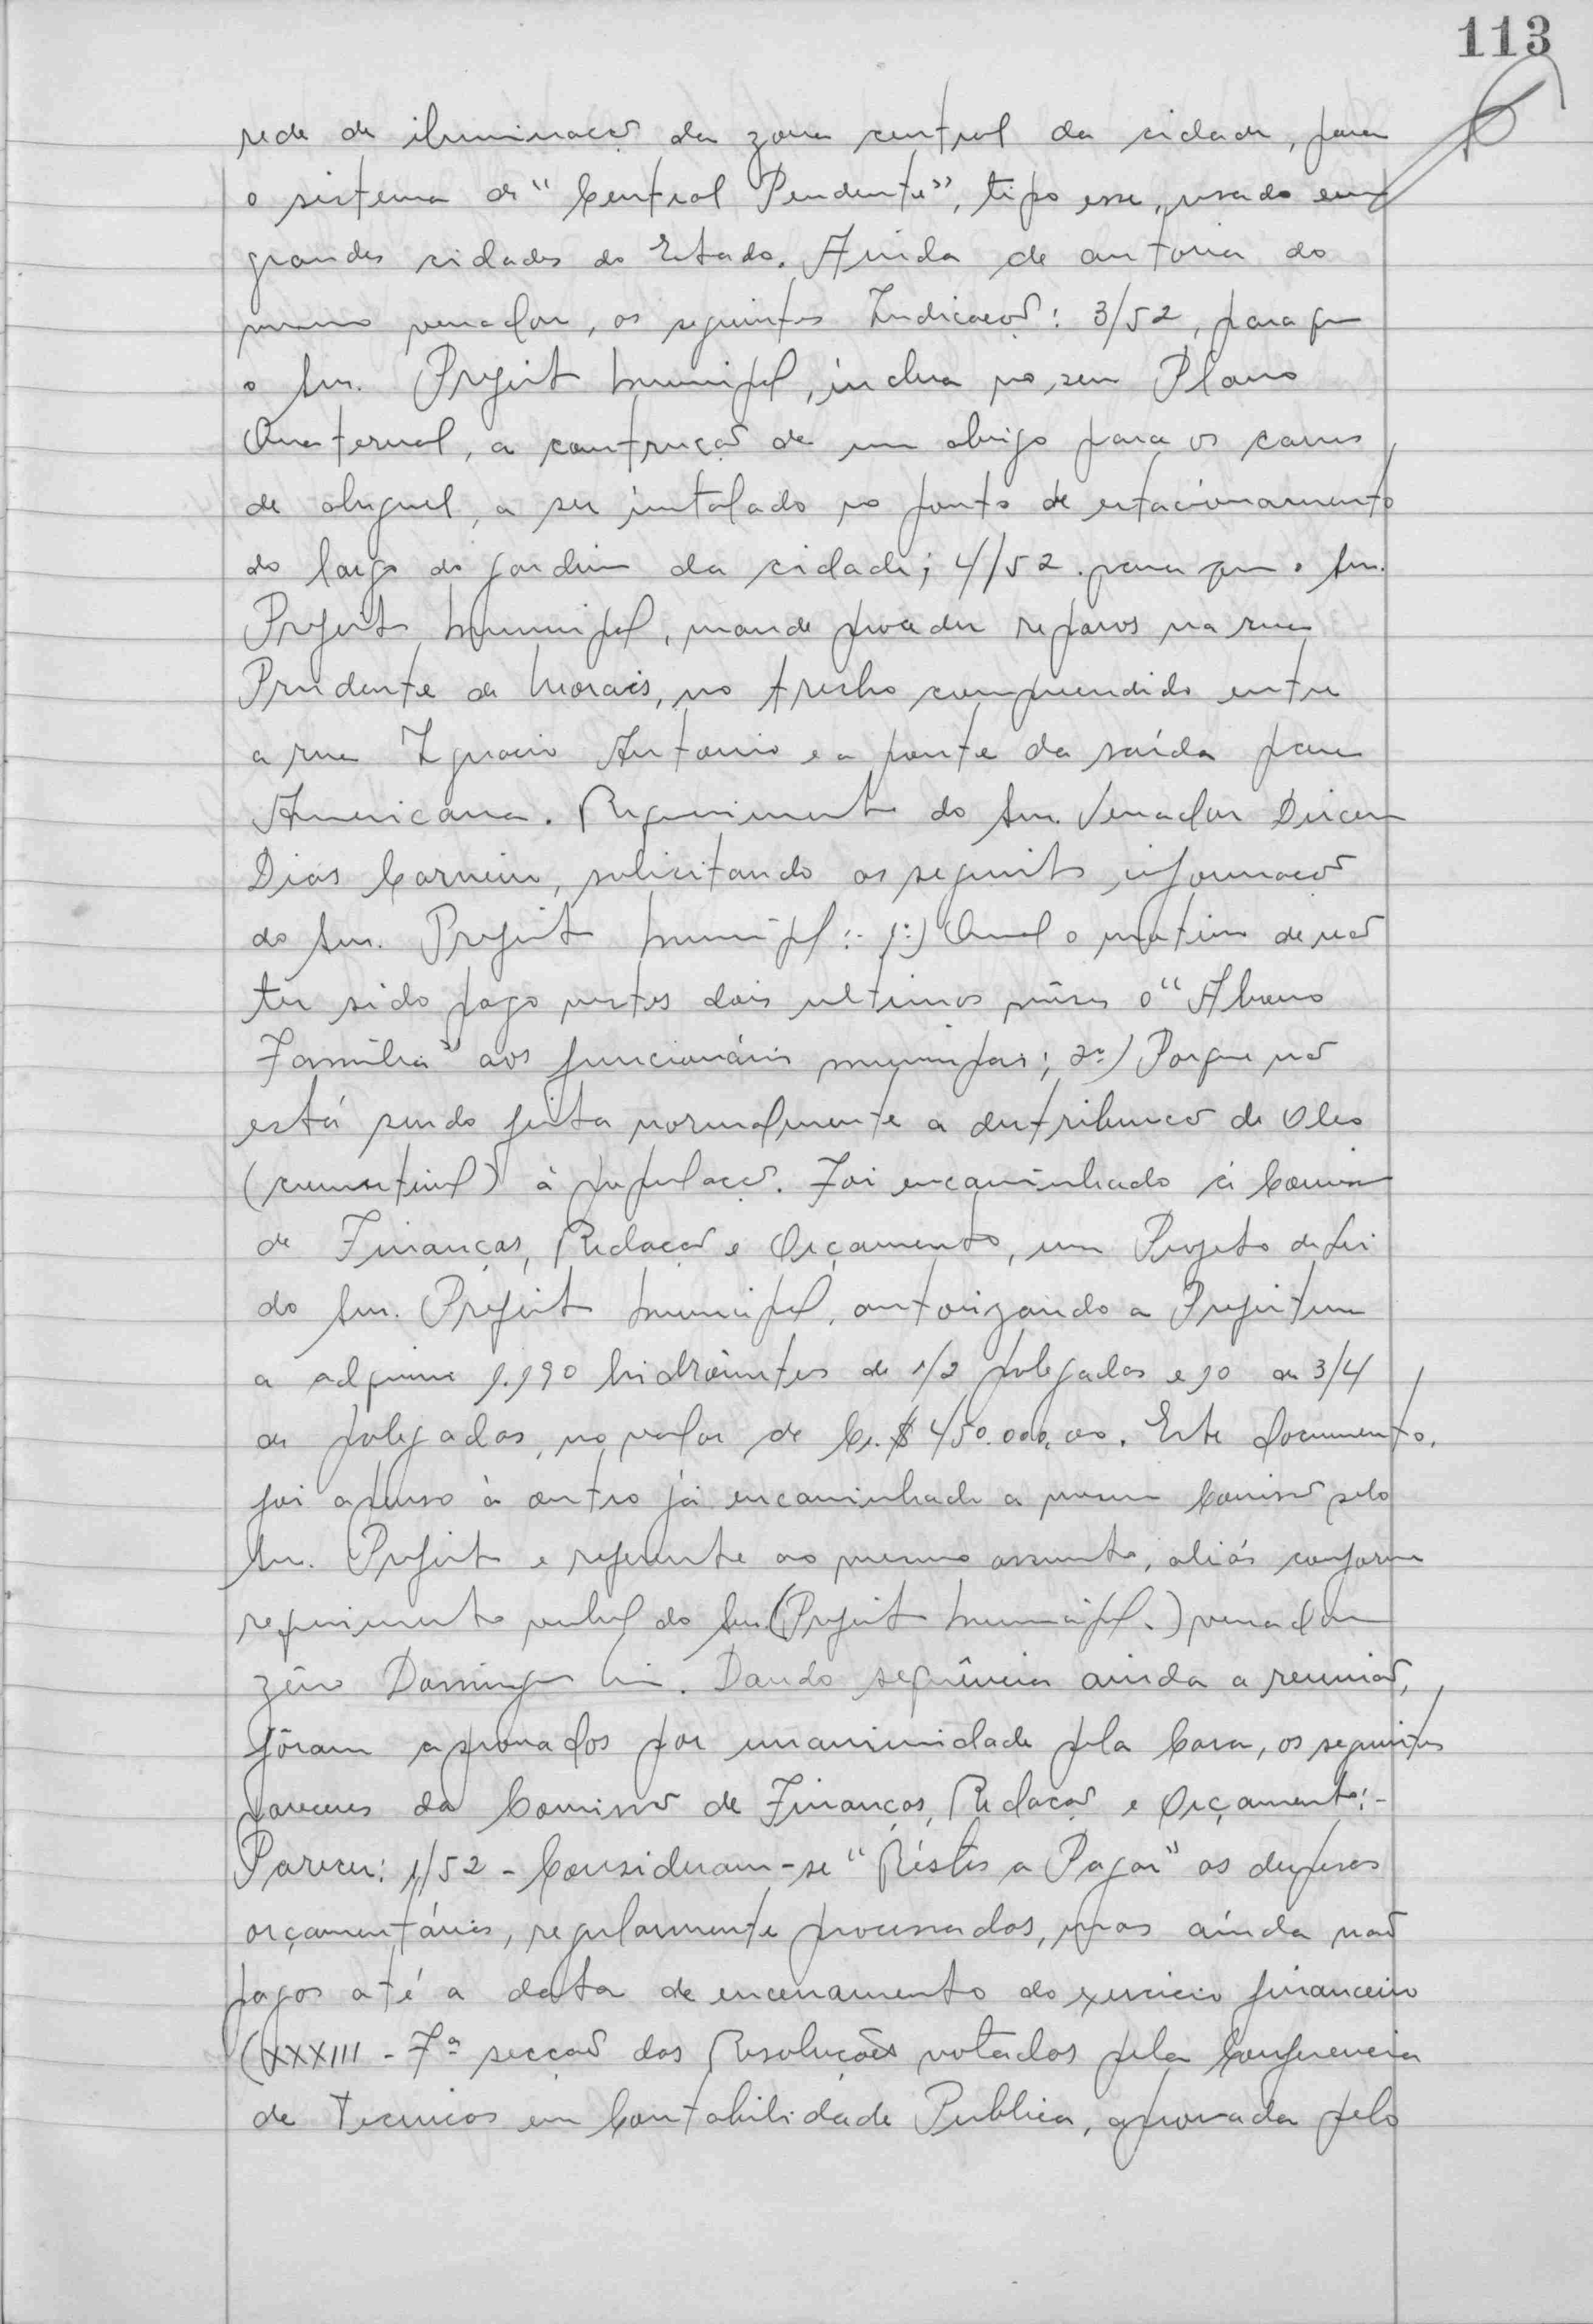 113
rede de iluminação da zona central da cidade, para
o sistema de "Central Pendente", tipo esse, usado em
grandes cidades do Estado. Ainda de autoria do
mesmo vereador, as seguintes Indicações: 3/52, para que
o Snr. Prefeito Municipal, inclua no seu Plano
Quaternal, a construção de um abrigo para os carros
de aluguel, a ser instalado no ponto de estacionamento
do largo do jardim da cidade; 4/52 para que o Snr.
Prefeito Municipal, mande proceder reparos na rua
Prudente de Morais, no trecho compreendido entre
a rua Ignacio Antonio e a ponte da saída para
Americana. Requerimento do Snr. Vereador Dirceu
Dias Carneiro, solicitando as seguintes informações
do Snr. Prefeito Municipal:- 1º) Qual o motivo de não
ter sido pago nestes dois ultimos mêses o "Abono
Familia" aos funcionários municipais; 2º) Porque não
está sendo feita normalmente a distribuição de Oleo
(comestivel) à população. Foi encaminhado á Comissão
de Finanças, Redação e Orçamento, um Projeto de Lei
do Snr. Prefeito Municipal, autorizando a Prefeitura
a adquirir 1.190 hidrômetros de 1/2 polegadas e 10 de 3/4
de polegadas, no valor de Cr.$ 450.000,00. Este documento,
foi apenso à outro já encaminhado a mesma Comissão pelo
Snr. Prefeito e referente ao mesmo assunto, aliás conforme
requerimento verbal do Snr. (Prefeito Municipal.) vereador
Domingos. Dando sequência ainda a reunião,
fôram aprovados por unanimidade pela Casa, os seguintes
pareceres da Comissão de Finanças, Redação e Orçamento:-
Parecer: 1/52 - Consideram-se "Réstos a Pagar" as despesas
orçamentárias, regularmente processadas, mas ainda não
pagas até a data de encerramento do exercicio financeiro
(XXXIII - 7ª secção das Resoluções votadas pela Conferencia
de Tecnicos em Contabilidade Publica, aprovada pelo